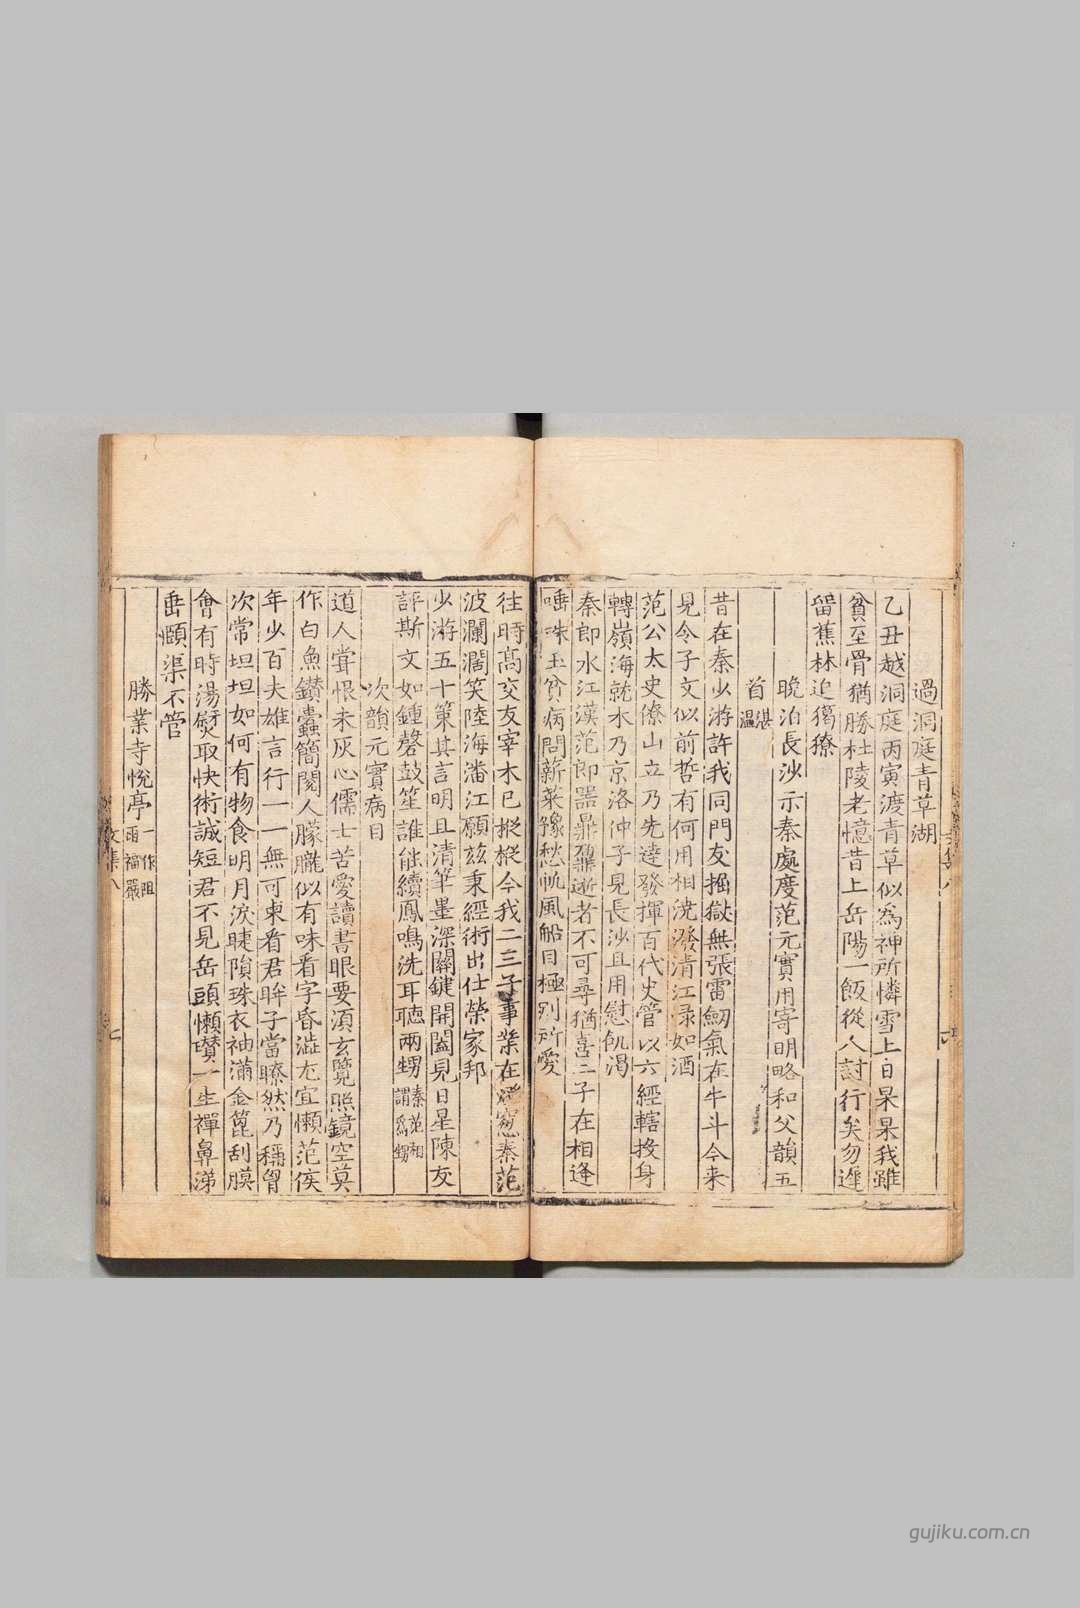 過洞庭青草湖
乙丑越洞庭丙寅渡青草似為神所憐雪上日杲杲我雖
貧至骨猶勝杜陵老憶昔上岳陽一飯從人討行矣勿遲
留蕉林追獦獠
晚泊長沙示秦處度范元實用寄明略和父韻五
首 湛 溫
昔在秦少游許我同門友掘獄無張雷劒氣在牛斗今来
見令子文似前哲有何用相澆潑清江渌如酒
范公太史僚山立乃先達發揮百代史管以六經轄投身
轉嶺海就木乃京洛仲子見長沙且用慰飢渴
秦郎水江漢范郎器鼎鼐逝者不可尋猶喜二子在相逢
唾珠玉貧病問薪菜豫愁帆風船目極別所愛
往時高交友宰木已樅樅今我二三子事業在燈窓秦范
波瀾濶笑陸海潘江願兹秉經術出仕榮家邦
少游五十策其言明且清筆墨深關鍵開闔見日星陳友
評斯文如鍾磬鼓笙誰能續鳳鳴洗耳聽兩甥 秦范相謂為甥
次韻元實病目
道人嘗恨未灰心儒士苦愛讀書眼要須玄覽照鏡空莫
作白魚鑽蠹簡閱人朦朧似有味看字昏澁尤宜懶范侯
年少百夫雄言行一一無可柬看君眸子當瞭然乃稱胷
次常坦坦如何有物食明月淚睫隕珠衣袖滿金篦刮膜
會有時湯熨取快術誠短君不見岳頭懶瓚一生禪鼻涕
垂頤渠不管
勝業寺悅亭 一作阻雨福嚴
文集八
七